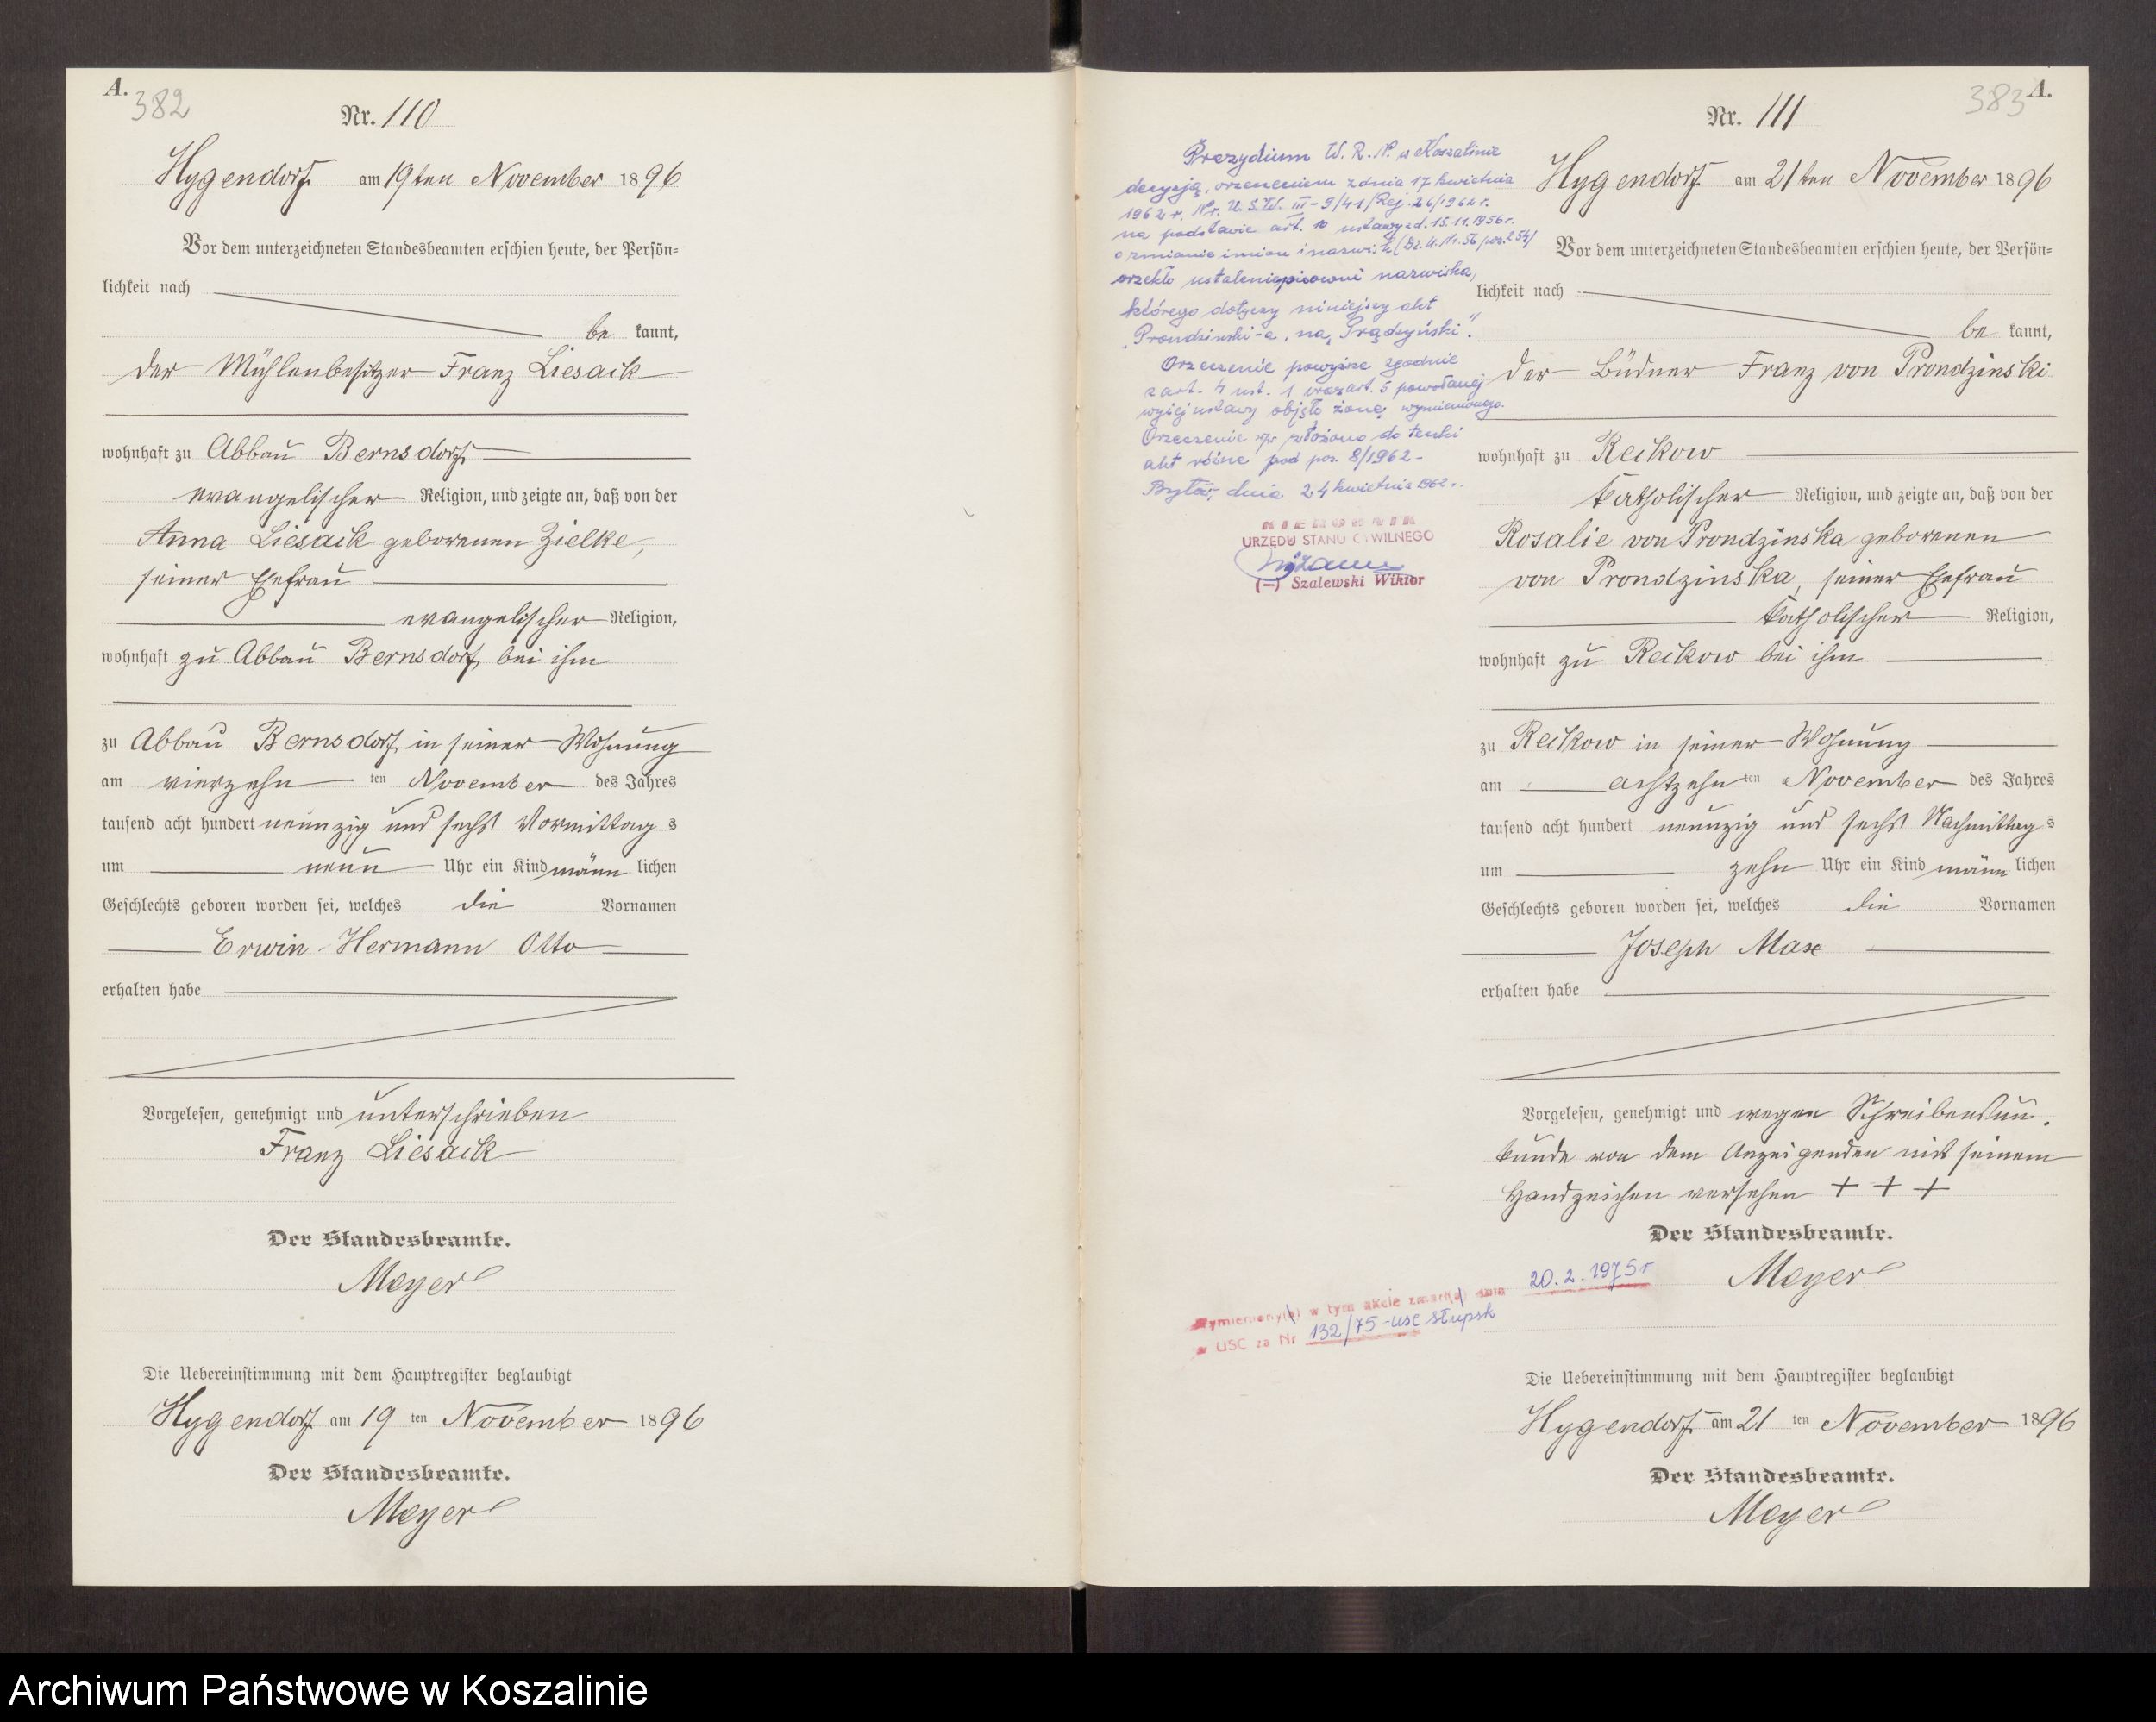 A.
382
Nr. 110
Hygendorf am 19ten November 1896
Vor dem unterzeichneten Standesbeamten erschien heute, der Persön=
lichkeit nach
be kannt,
der Mühlenbesitzer Franz Liesack
wohnhaft zu Abbau Bernsdorf
evangelischer Religion, und zeigte an, daß von der
Anna Liesack geborenen Zielke,
seiner Ehefrau
evangelischer Religion,
wohnhaft zu Abbau Bernsdorf bei ihm
zu Abbau Bernsdorf in seiner Wohnung
am vierzehn ten November des Jahres
tausend acht hundert neunzig und sechs Vormittag s
um neun Uhr ein Kind männ lichen
Geschlechts geboren worden sei, welches die Vornamen
Erwin Hermann Otto
erhalten habe
Vorgelesen, genehmigt und unterschrieben
Franz Liesack
Der Standesbeamte.
Meyer
Die Uebereinstimmung mit dem Hauptregister beglaubigt
Hygendorf am 19 ten November 1896
Der Standesbeamte.
Meyer
Prezydium W. R. N. w Koszalinie
decyzją, orzeczeniem z dnia 17 kwietnia
1962 r. Nr. U.S.W. III-9/41/Rej. 26/1962 r.
na podstawie art. 10 ustawy z d. 15.11.1956 r.
o zmianie imion i nazwisk (Dz. U. Nr. 56 poz. 254)
orzekło ustalenie pisowni nazwiska,
którego dotyczy niniejszy akt
"Prondzinski-a, na, Prądzyński".
Orzeczenie powyższe zgodnie
z art. 4 ust. 1 oraz art. 5 powołanej
wyżej ustawy objęło żonę wymienionego.
Orzeczenie złożono do teczki
akt różne pod poz. 8/1962 -
Bytów, dnia 24 kwietnia 1962 r.
KIEROWNIK
URZĘDU STANU CYWILNEGO
(—) Szalewski Wiktor
383
A.
Nr. 111
Hygendorf am 21ten November 1896
Vor dem unterzeichneten Standesbeamten erschien heute, der Persön=
lichkeit nach
be kannt,
der Büdner Franz von Prondzinski
wohnhaft zu Reckow
katholischer Religion, und zeigte an, daß von der
Rosalie von Prondzinska geborenen
von Prondzinska, seiner Ehefrau
katholischer Religion,
wohnhaft zu Reckow bei ihm
zu Reckow in seiner Wohnung
am achtzehn ten November des Jahres
tausend acht hundert neunzig und sechs Nachmittag s
um zehn Uhr ein Kind männ lichen
Geschlechts geboren worden sei, welches die Vornamen
Joseph Max
erhalten habe
Vorgelesen, genehmigt und wegen Schreibensun-
kunde von dem Anzeigenden mit seinem
Handzeichen versehen + + +
Der Standesbeamte.
Meyer
Wymieniony(a) w tym akcie zmarł(a) dnia 20.2.1975 r
w USC za Nr 132/75 - USC Słupsk
Die Uebereinstimmung mit dem Hauptregister beglaubigt
Hygendorf am 21 ten November 1896
Der Standesbeamte.
Meyer
Archiwum Państwowe w Koszalinie